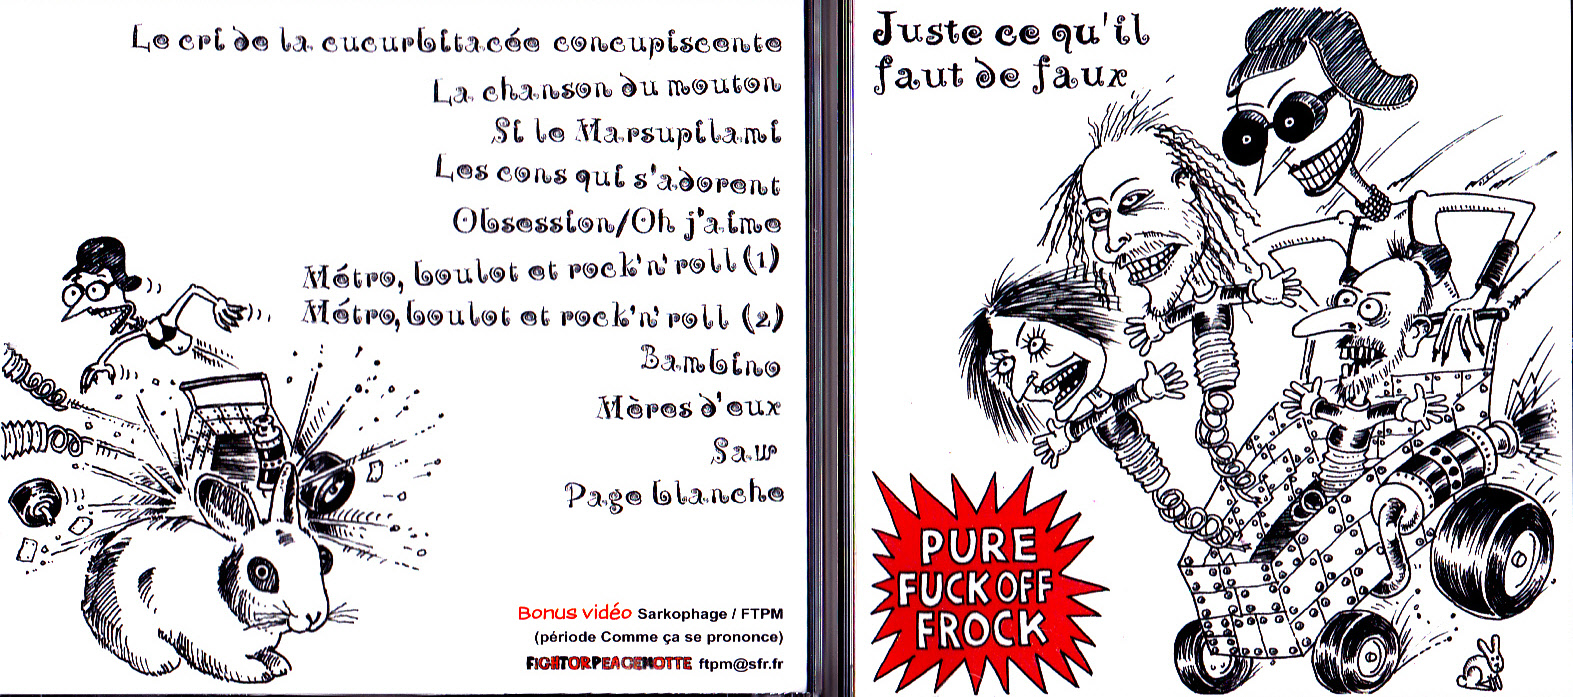 Le cri de la cucurbitacée concupiscente
La chanson du mouton
Si le Marsupilami
Les cons qui s'adorent
Obsession/Oh j'aime
Métro, boulot et rock'n'roll (1)
Métro, boulot et rock'n'roll (2)
Bambino
Mères d'eux
Saw
Page blanche
Bonus vidéo Sarkophage / FTPM
(période Comme ça se prononce)
FIGHTORPEACEMOTTE ftpm@sfr.fr
Juste ce qu'il
faut de faux
PURE
FUCK OFF
FROCK